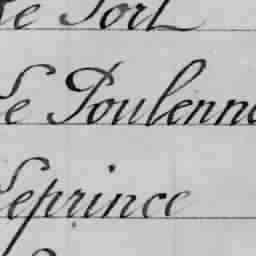 Le Port
Le Poulenne
Leprince